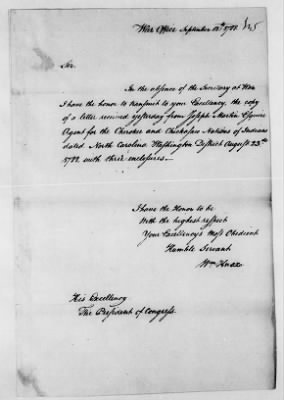 War Office September 12th 1788.
Sir.
In the absence of the Secretary at War
I have the honor to transmit to your Excellency, the copy
of a letter received yesterday from Joseph Martin Esquire
Agent for the Cherokee and Chickasaw Nations of Indians
dated North Carolina Washington District August 23rd
1788 with three enclosures.
I have the Honor to be
With the highest respect
Your Excellency's Most Obedient
Humble Servant
Wm Knox
His Excellency
The President of Congress.